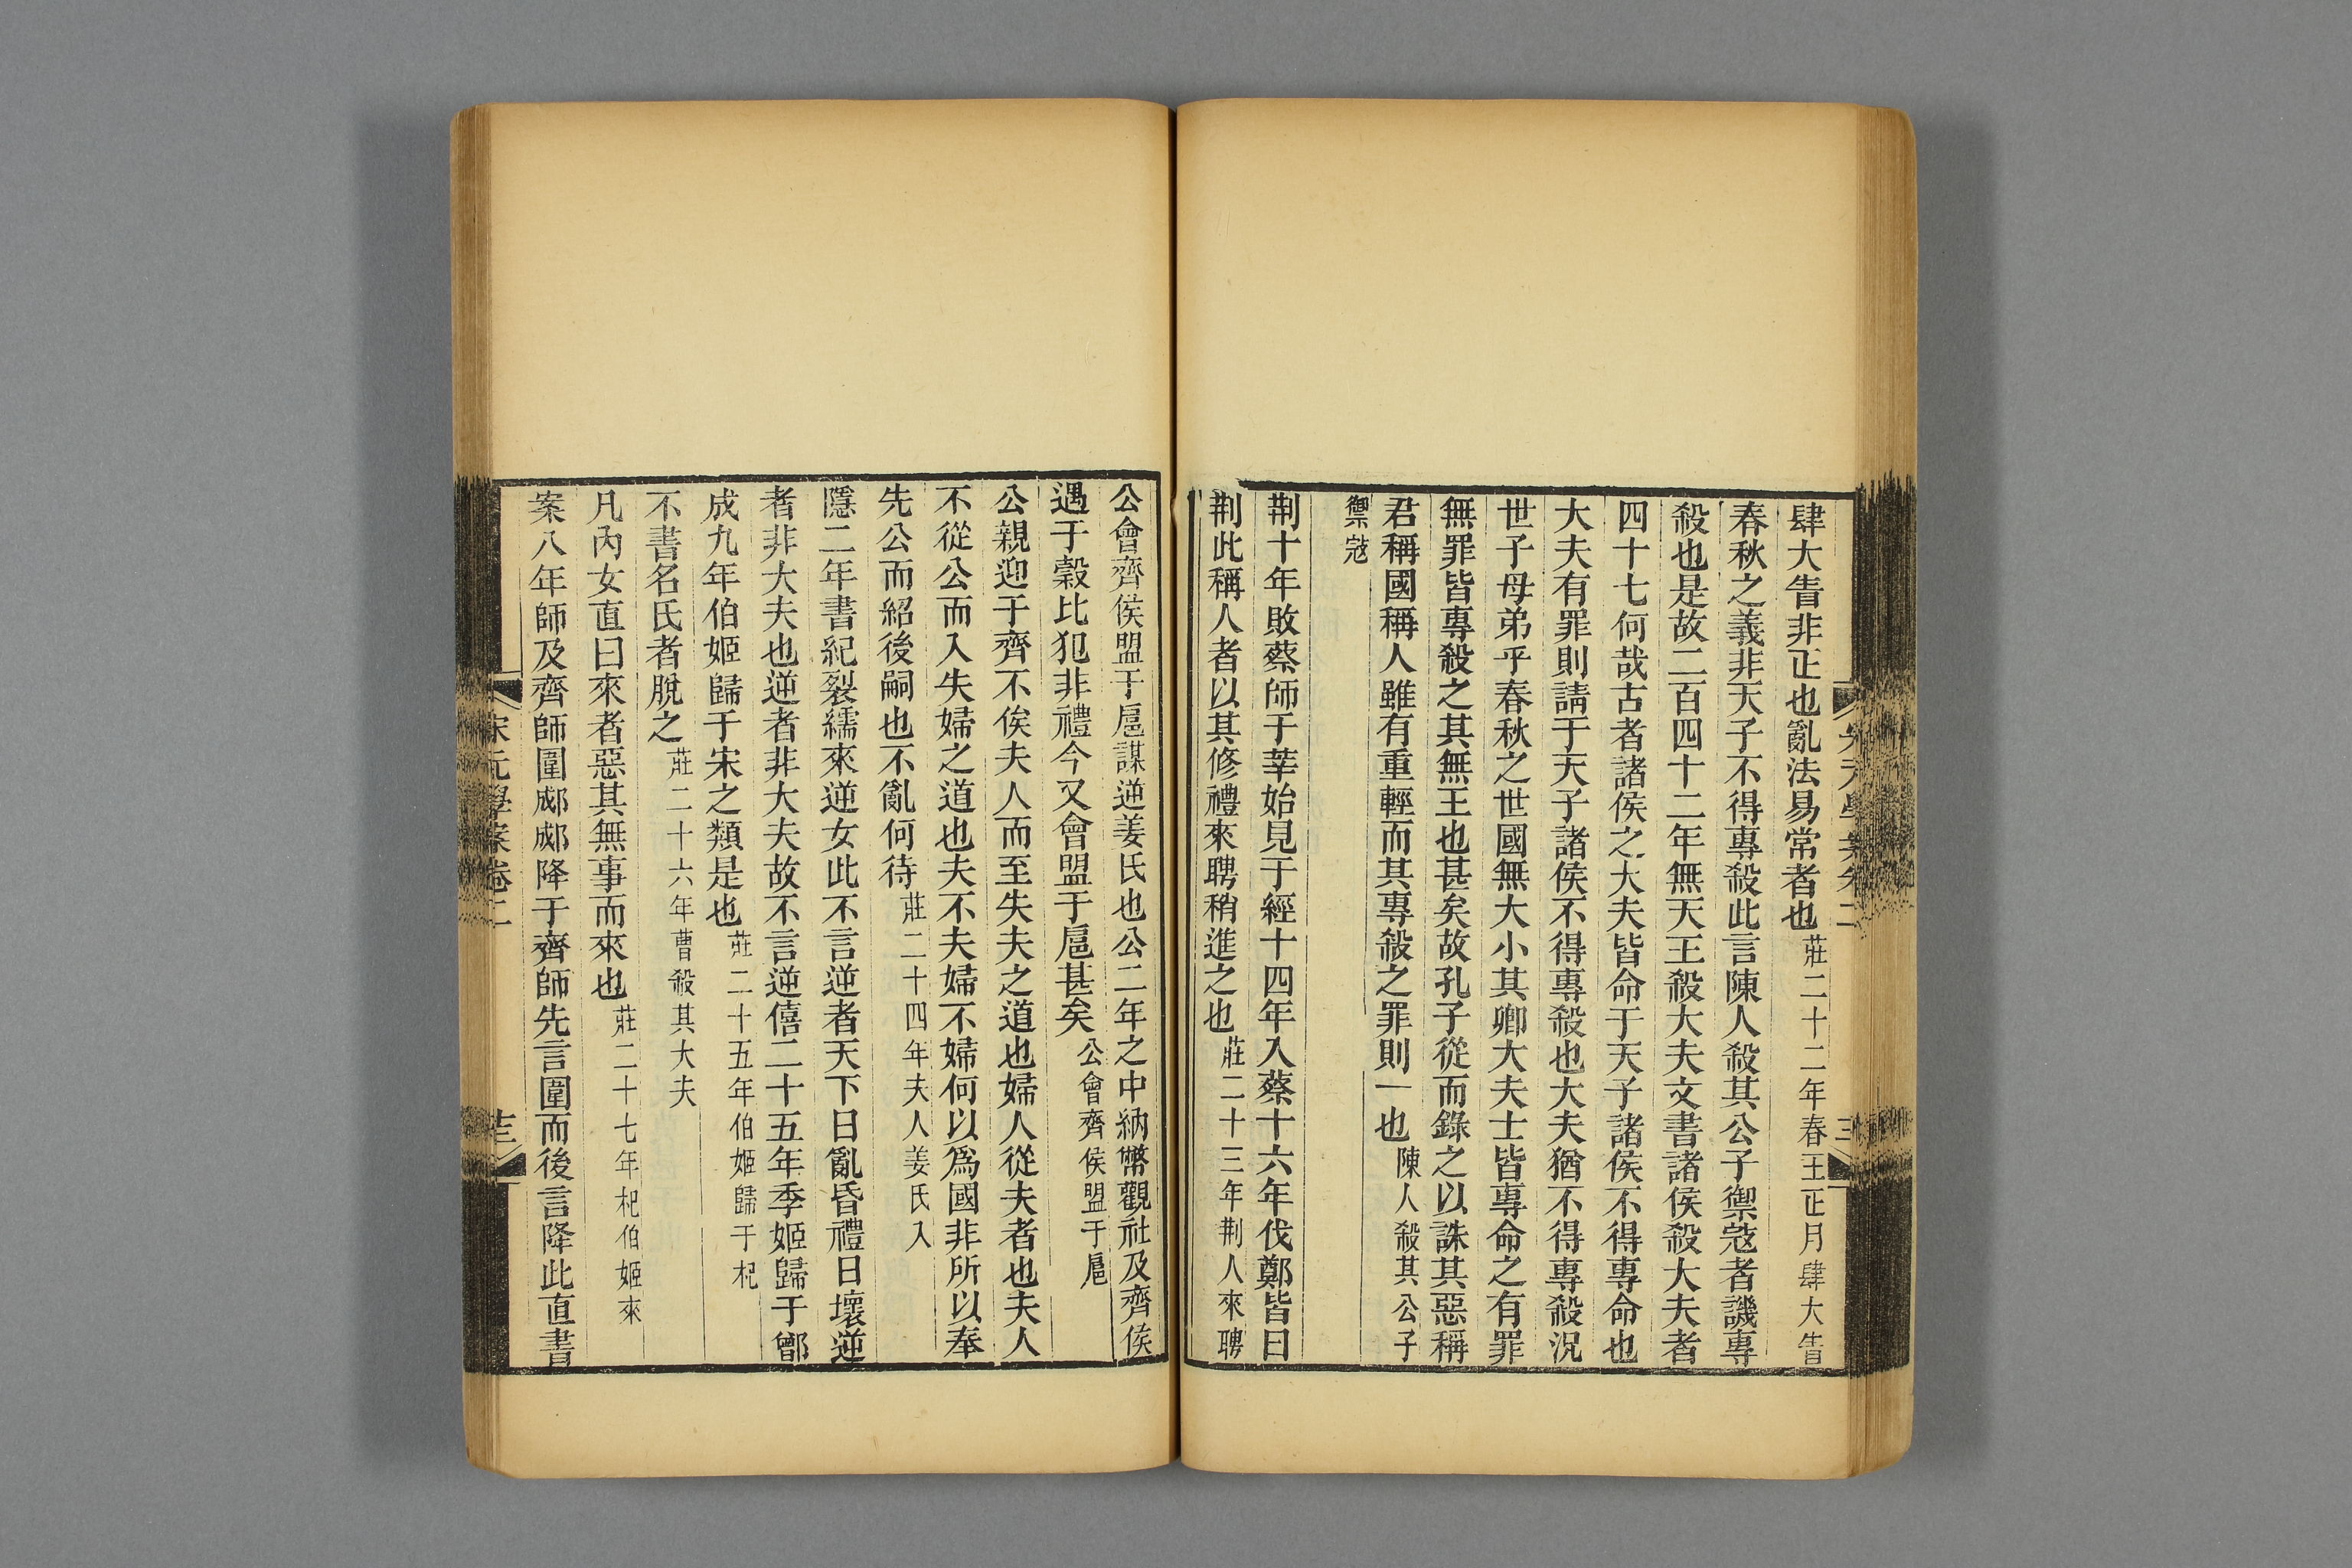 肆大眚非正也亂法易常者也莊二十二年春王正月肆大眚
春秋之義非天子不得專殺此言陳人殺其公子禦寇者譏專
殺也是故二百四十二年無天王殺大夫文書諸侯殺大夫者
四十七何哉古者諸侯之大夫皆命于天子諸侯不得專命也
大夫有罪則請于天子諸侯不得專殺也大夫猶不得專殺況
世子母弟乎春秋之世國無大小其卿大夫士皆專命之有罪
無罪皆專殺之其無王也甚矣故孔子從而錄之以誅其惡稱
君稱國稱人雖有重輕而其專殺之罪則一也陳人殺其公子
禦寇
荆十年敗蔡師于莘始見于經十四年入蔡十六年伐鄭皆曰
荆此稱人者以其修禮來聘稍進之也莊二十三年荆人來聘
公會齊侯盟于扈謀逆姜氏也公二年之中納幣觀社及齊侯
遇于穀比犯非禮今又會盟于扈甚矣公會齊侯盟于扈
公親迎于齊不俟夫人而至失夫之道也婦人從夫者也夫人
不從公而入失婦之道也夫不夫婦不婦何以爲國非所以奉
先公而紹後嗣也不亂何待莊二十四年夫人姜氏入
隱二年書紀裂繻來逆女此不言逆者天下日亂昏禮日壞逆
者非大夫也逆者非大夫故不言逆僖二十五年季姬歸于鄫
成九年伯姬歸于宋之類是也莊二十五年伯姬歸于杞
不書名氏者脫之莊二十六年曹殺其大夫
凡內女直曰來者惡其無事而來也莊二十七年杞伯姬來
案八年師及齊師圍郕郕降于齊師先言圍而後言降此直書
宋元學案卷二